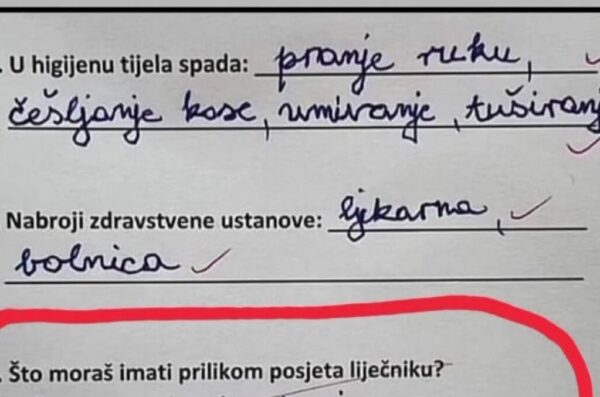 . U higijenu tijela spada: pranje ruku,
češljanje kose, umivanje, tuširanj
Nabroji zdravstvene ustanove: ljekarna,
bolnica
. Što moraš imati prilikom posjeta liječniku?